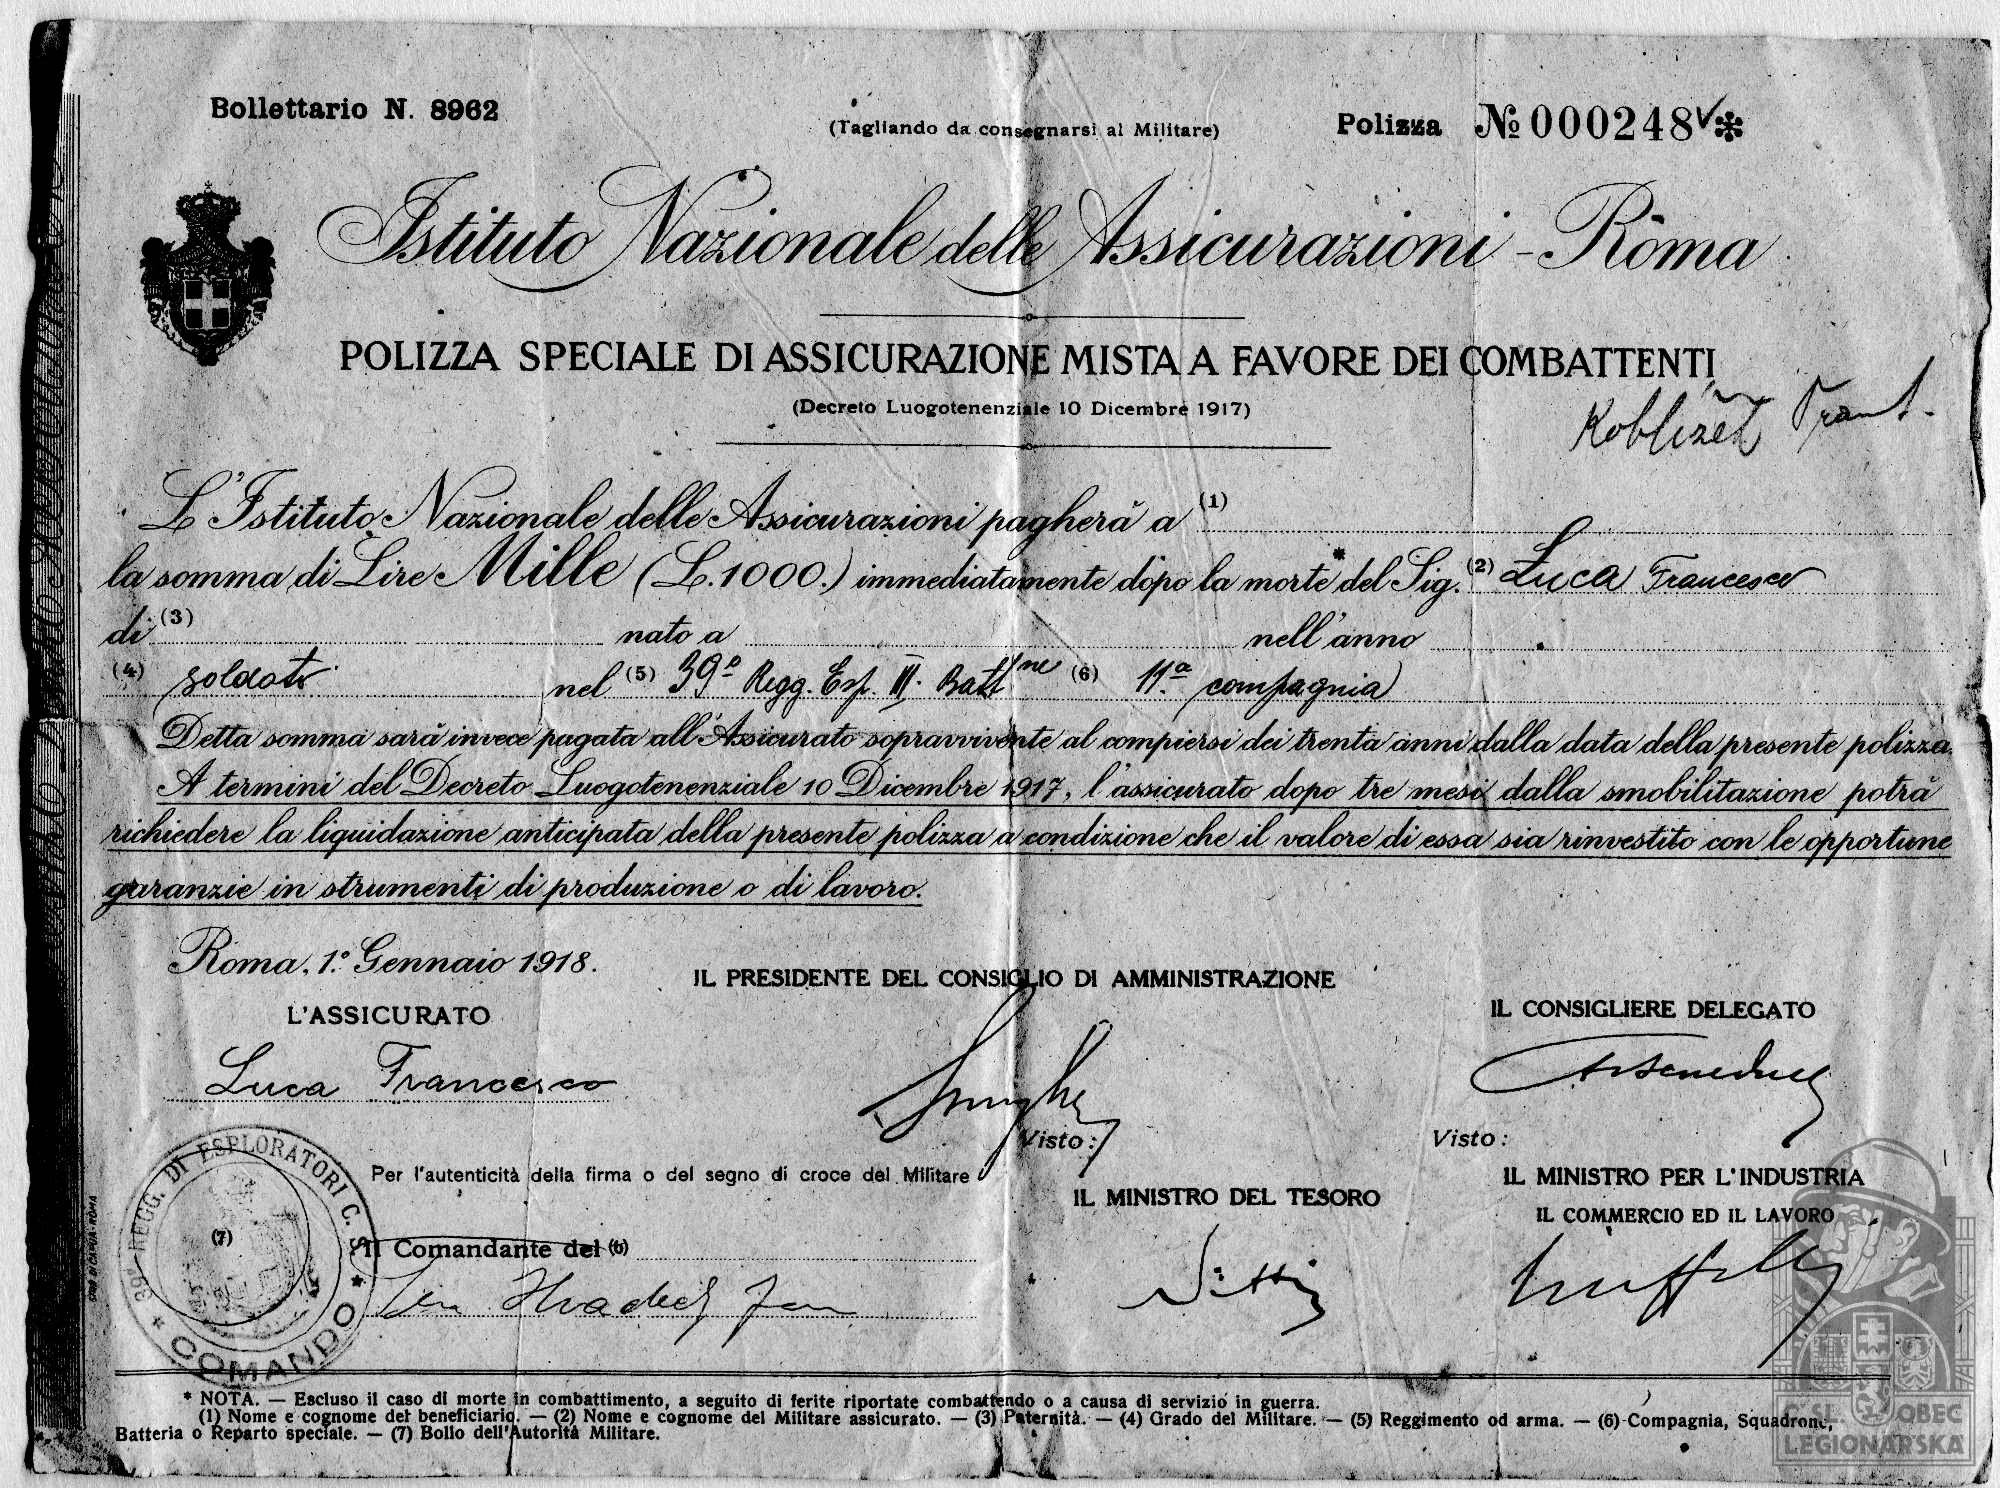 Bollettario N. 8962
(Tagliando da consegnarsi al Militare)
Polizza № 000248 *
Istituto Nazionale delle Assicurazioni - Roma
POLIZZA SPECIALE DI ASSICURAZIONE MISTA A FAVORE DEI COMBATTENTI
(Decreto Luogotenenziale 10 Dicembre 1917)
Koblížek Frant.
L'Istituto Nazionale delle Assicurazioni pagherà a (1)
la somma di Lire Mille (L. 1000.) immediatamente dopo la morte* del Sig. (2) Luca Francesco
di (3) nato a nell'anno
(4) soldato nel (5) 39º Regg. Esp. III. Battne (6) 11.a compagnia
Detta somma sarà invece pagata all'Assicurato sopravvivente al compiersi dei trenta anni dalla data della presente polizza.
A termini del Decreto Luogotenenziale 10 Dicembre 1917, l'assicurato dopo tre mesi dalla smobilitazione potrà
richiedere la liquidazione anticipata della presente polizza a condizione che il valore di essa sia rinvestito con le opportune
garanzie in strumenti di produzione o di lavoro.
Roma, 1º Gennaio 1918.
IL PRESIDENTE DEL CONSIGLIO DI AMMINISTRAZIONE
IL CONSIGLIERE DELEGATO
L'ASSICURATO
Luca Francesco
Visto:
Visto:
Per l'autenticità della firma o del segno di croce del Militare
IL MINISTRO DEL TESORO
IL MINISTRO PER L'INDUSTRIA
IL COMMERCIO ED IL LAVORO
39º REGG. DI ESPLORATORI C. S. * COMANDO *
(7)
Il Comandante del (6)
Hradec Jan
Nitti
* NOTA. — Escluso il caso di morte in combattimento, a seguito di ferite riportate combattendo o a causa di servizio in guerra.
(1) Nome e cognome del beneficiario. — (2) Nome e cognome del Militare assicurato. — (3) Paternità. — (4) Grado del Militare. — (5) Reggimento od arma. — (6) Compagnia, Squadrone,
Batteria o Reparto speciale. — (7) Bollo dell'Autorità Militare.
ČSL. OBEC
LEGIONÁŘSKÁ